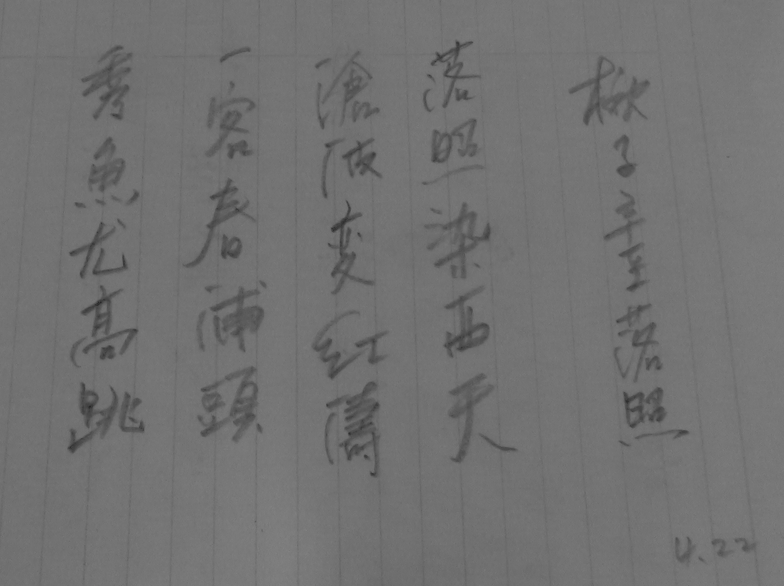 楸子辛至落照
落照染西天
滄波变紅濤
一客春浦頭
秀魚尤高跳
4.22